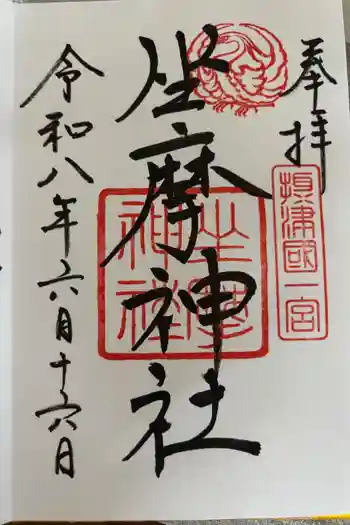 奉拝
摂津國一宮
坐摩神社
坐摩神社
令和八年六月十六日